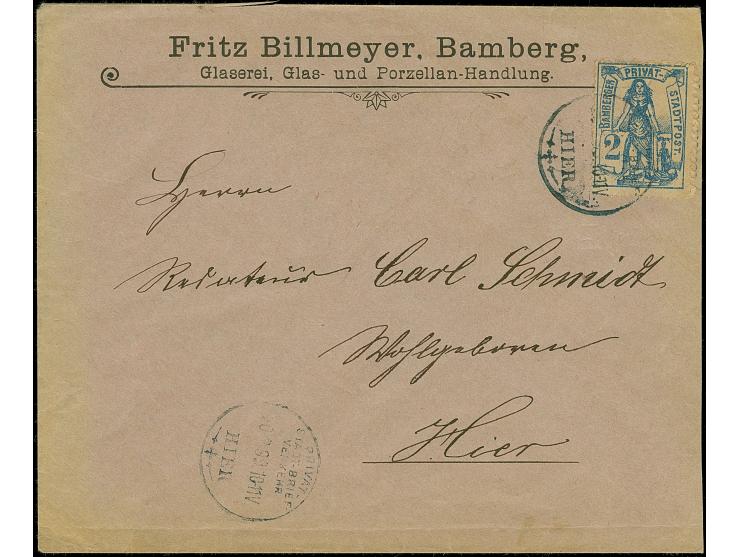 Fritz Billmeyer, Bamberg,
Glaserei, Glas- und Porzellan-Handlung.
BAMBERGER PRIVAT- STADTPOST.
2
HIER
Herrn
Redateur Carl Schmidt
Wohlgeboren
Hier
PRIVAT-
STADT-BRIEF
VERKEHR
10-11V
HIER